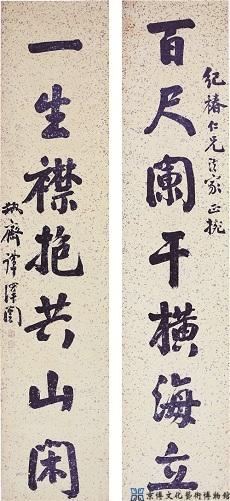 百尺阑干横海立
紀椿仁兄方家正捥
一生襟抱共山閑
瓶齋譚澤闿
京博文化藝術博物館